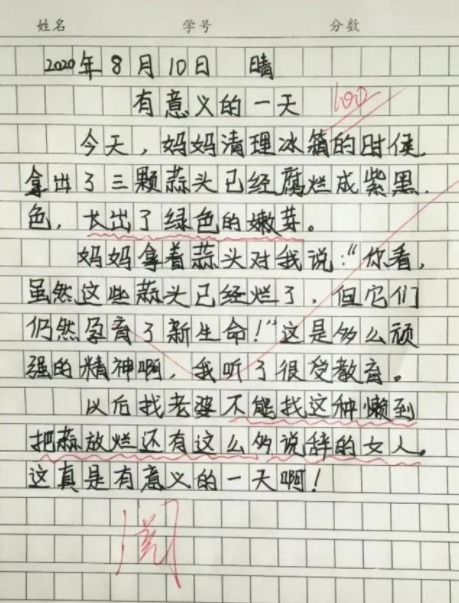 姓名 学号 分数
2020年8月10日 晴
有意义的一天 100
今天，妈妈清理冰箱的时候
拿出了三颗蒜头已经腐烂成紫黑
色，长出了绿色的嫩芽。
妈妈拿着蒜头对我说：“你看，
虽然这些蒜头已经烂了，但它们
仍然孕育了新生命！”这是多么顽
强的精神啊，我听了很受教育。
以后找老婆不能找这种懒到
把蒜放烂还有这么多说辞的女人。
这真是有意义的一天啊！
阅